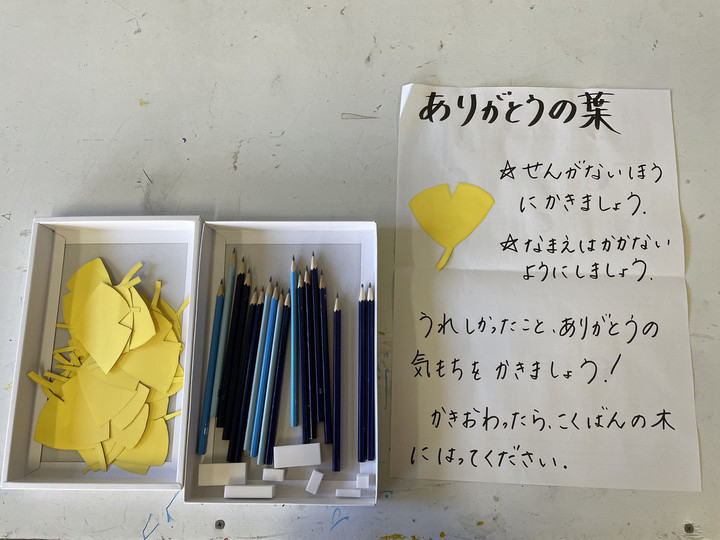 ありがとうの葉
☆せんがないほう
にかきましょう.
☆なまえはかかない
ようにしましょう.
うれしかったこと、ありがとうの
気もちをかきましょう!
かきおわったら、こくばんの木
にはってください.